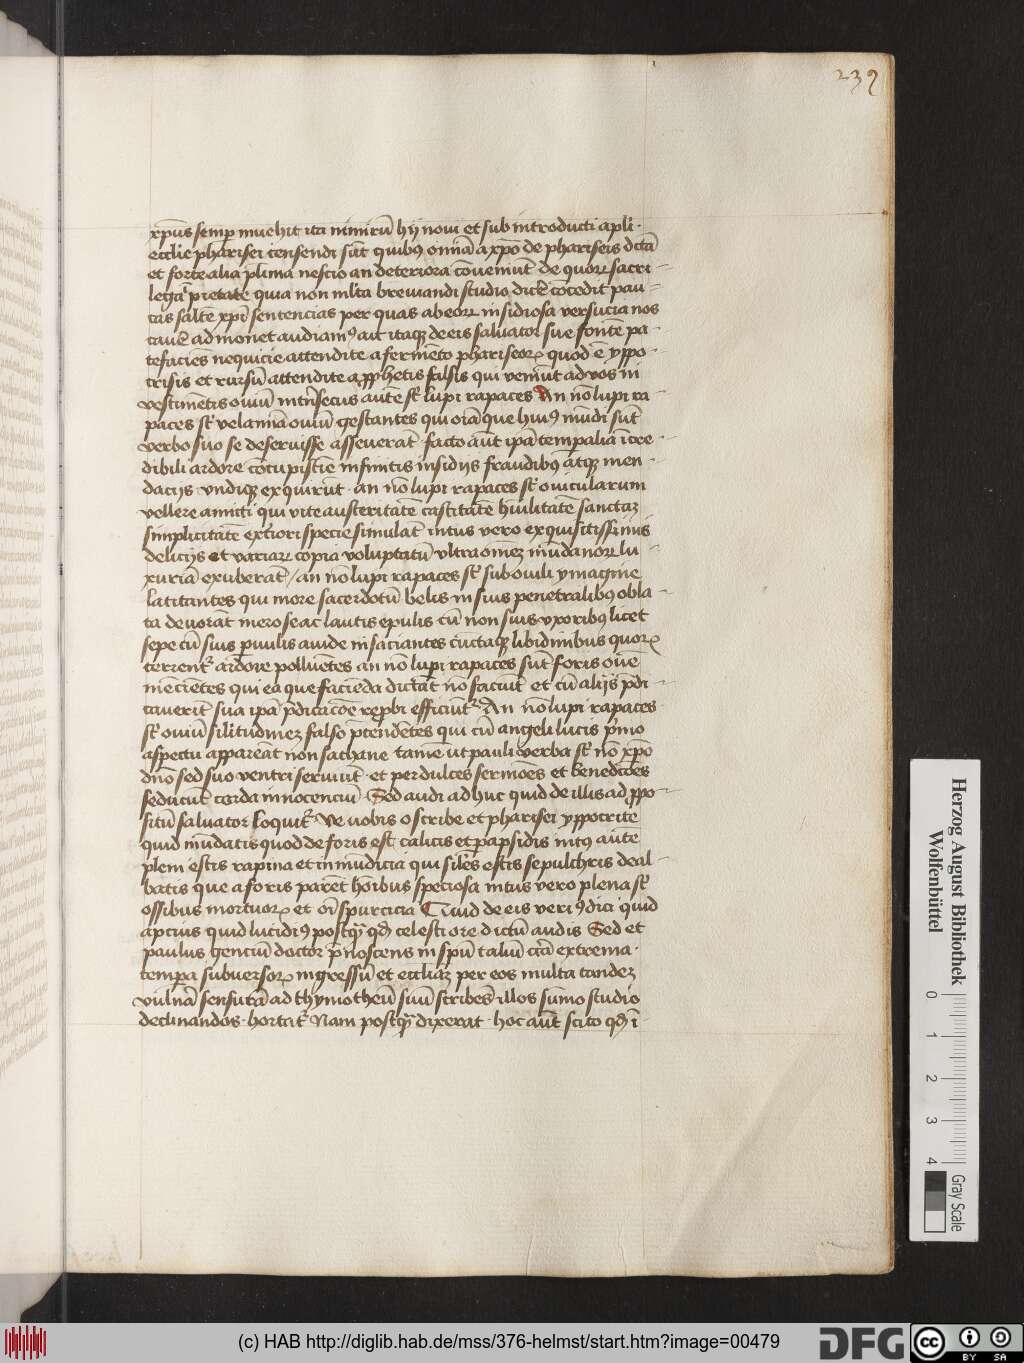 237
xp̄us semp̱ inuehit ita nimirū hij noui et sub introducti apli ·
eccl̄ie pharisei censendi sūt quibꝰ om̄īa a xp̄o de phariseis dictā
et forte alia pl̄ima nescio an deteriora cōueniūt de quoꝝ sacri-
lega īpietate quia non ml̄ta breuiandi studio dicē cōcedit̄ pau-
cas saltē xp̄i sentencias per quas ab eoꝝ insidiosa versucia nos
cauē admonet audiamꝰ ait itaqꝫ de eis saluator sue fontē pa-
tefaciēs nequicie attendite a fermēto phariseoꝝ quod ē yppo-
crisis et rursū attendite a ꝓphetis falsis qui veniūt ad vos in
vestimētis ouiū intrīsecus autē sūt lupi rapaces An nō lupi ra
paces sūt velamīa ouiū gestantes qui om̄ia que huiꝰ mūdi sūt
verbo suo se deseruisse asseuerāt facto aūt ip̄a temp̱alia īcre-
dibili ardore cōcupisc̄ie infinitis insidijs fraudibꝰ atqꝫ men-
dacijs vndiqꝫ exquirūt · an nō lupi rapaces sūt ouicularum
vellere amicti qui vite austeritatē castitatē hūilitatē sanctaꝫ
simplicitatē exteriori specie simulāt intus vero exquisitissimis
delicijs et variaꝝ copia voluptatū vltra omēꝫ mūdanoꝝ lu-
xuriā exuberāt / an nō lupi rapaces sūt sub ouili ymagine
latitantes qui more sacerdotū belis in suis penetralibꝰ obla-
ta deuorāt mero se ac lautis epulis cū non suis vxoribꝰ licet
sepe cū suis p̱uulis auide insaciantes cūctaqꝫ libidinibus quoꝝ
terrent̄ ardore polluētes an nō lupi rapaces sūt foris ouē
mēciētes qui ea que faciēda dictāt nō faciūt et cū alijs p̄di-
cauerīt sua ip̄a p̄dicacōe rep̱bi efficiūt̄ An nō lupi rapaces
sūt ouiū sil̄itudinēꝫ falso p̄tendētes qui cū angeli lucis p̄mo
aspectu appareāt non sathane tamē ut pauli verba sūt nō xp̄o
dn̄o sed suo ventri seruiūt · et per dulces sermōes et benedic̄oēs
seducūt corda innocenciū · Sed audi adhuc quid de illis ad ꝓpo-
sitū saluator loquit̄ Ve vobis o scribe et pharisei yppocrite
quid mūdatis quod de foris est calicis et parapsidis intꝰ aūte
pleni estis rapina et inmūdicia qui sil̄es estis sepulchris deal-
batis que a foris parēt hoīibus speciosa intus vero plena sūt
ossibus mortuoꝝ et oī spurcicia Quid de eis veri ꝯdici quid
apcius quid lucidiꝰ postꝙ̄ qd̄ celesti ore dictū audis Sed et
paulus genciū doctor p̄noscens in sp̄ū taliū circa extrema ·
temp̱a subuersoꝝ ingressū et eccl̄iaꝫ per eos multa tandeꝫ
vulnā sensurā ad thymotheū suū scribēs illos sūmo studio
declinandos · hortat̄ Nam postꝙ̄ dixerat · hoc aūt scito qd̄ ī
Herzog August Bibliothek
Wolfenbüttel
0 1 2 3 4
Gray Scale
(c) HAB http://diglib.hab.de/mss/376-helmst/start.htm?image=00479
DFG
cc BY SA